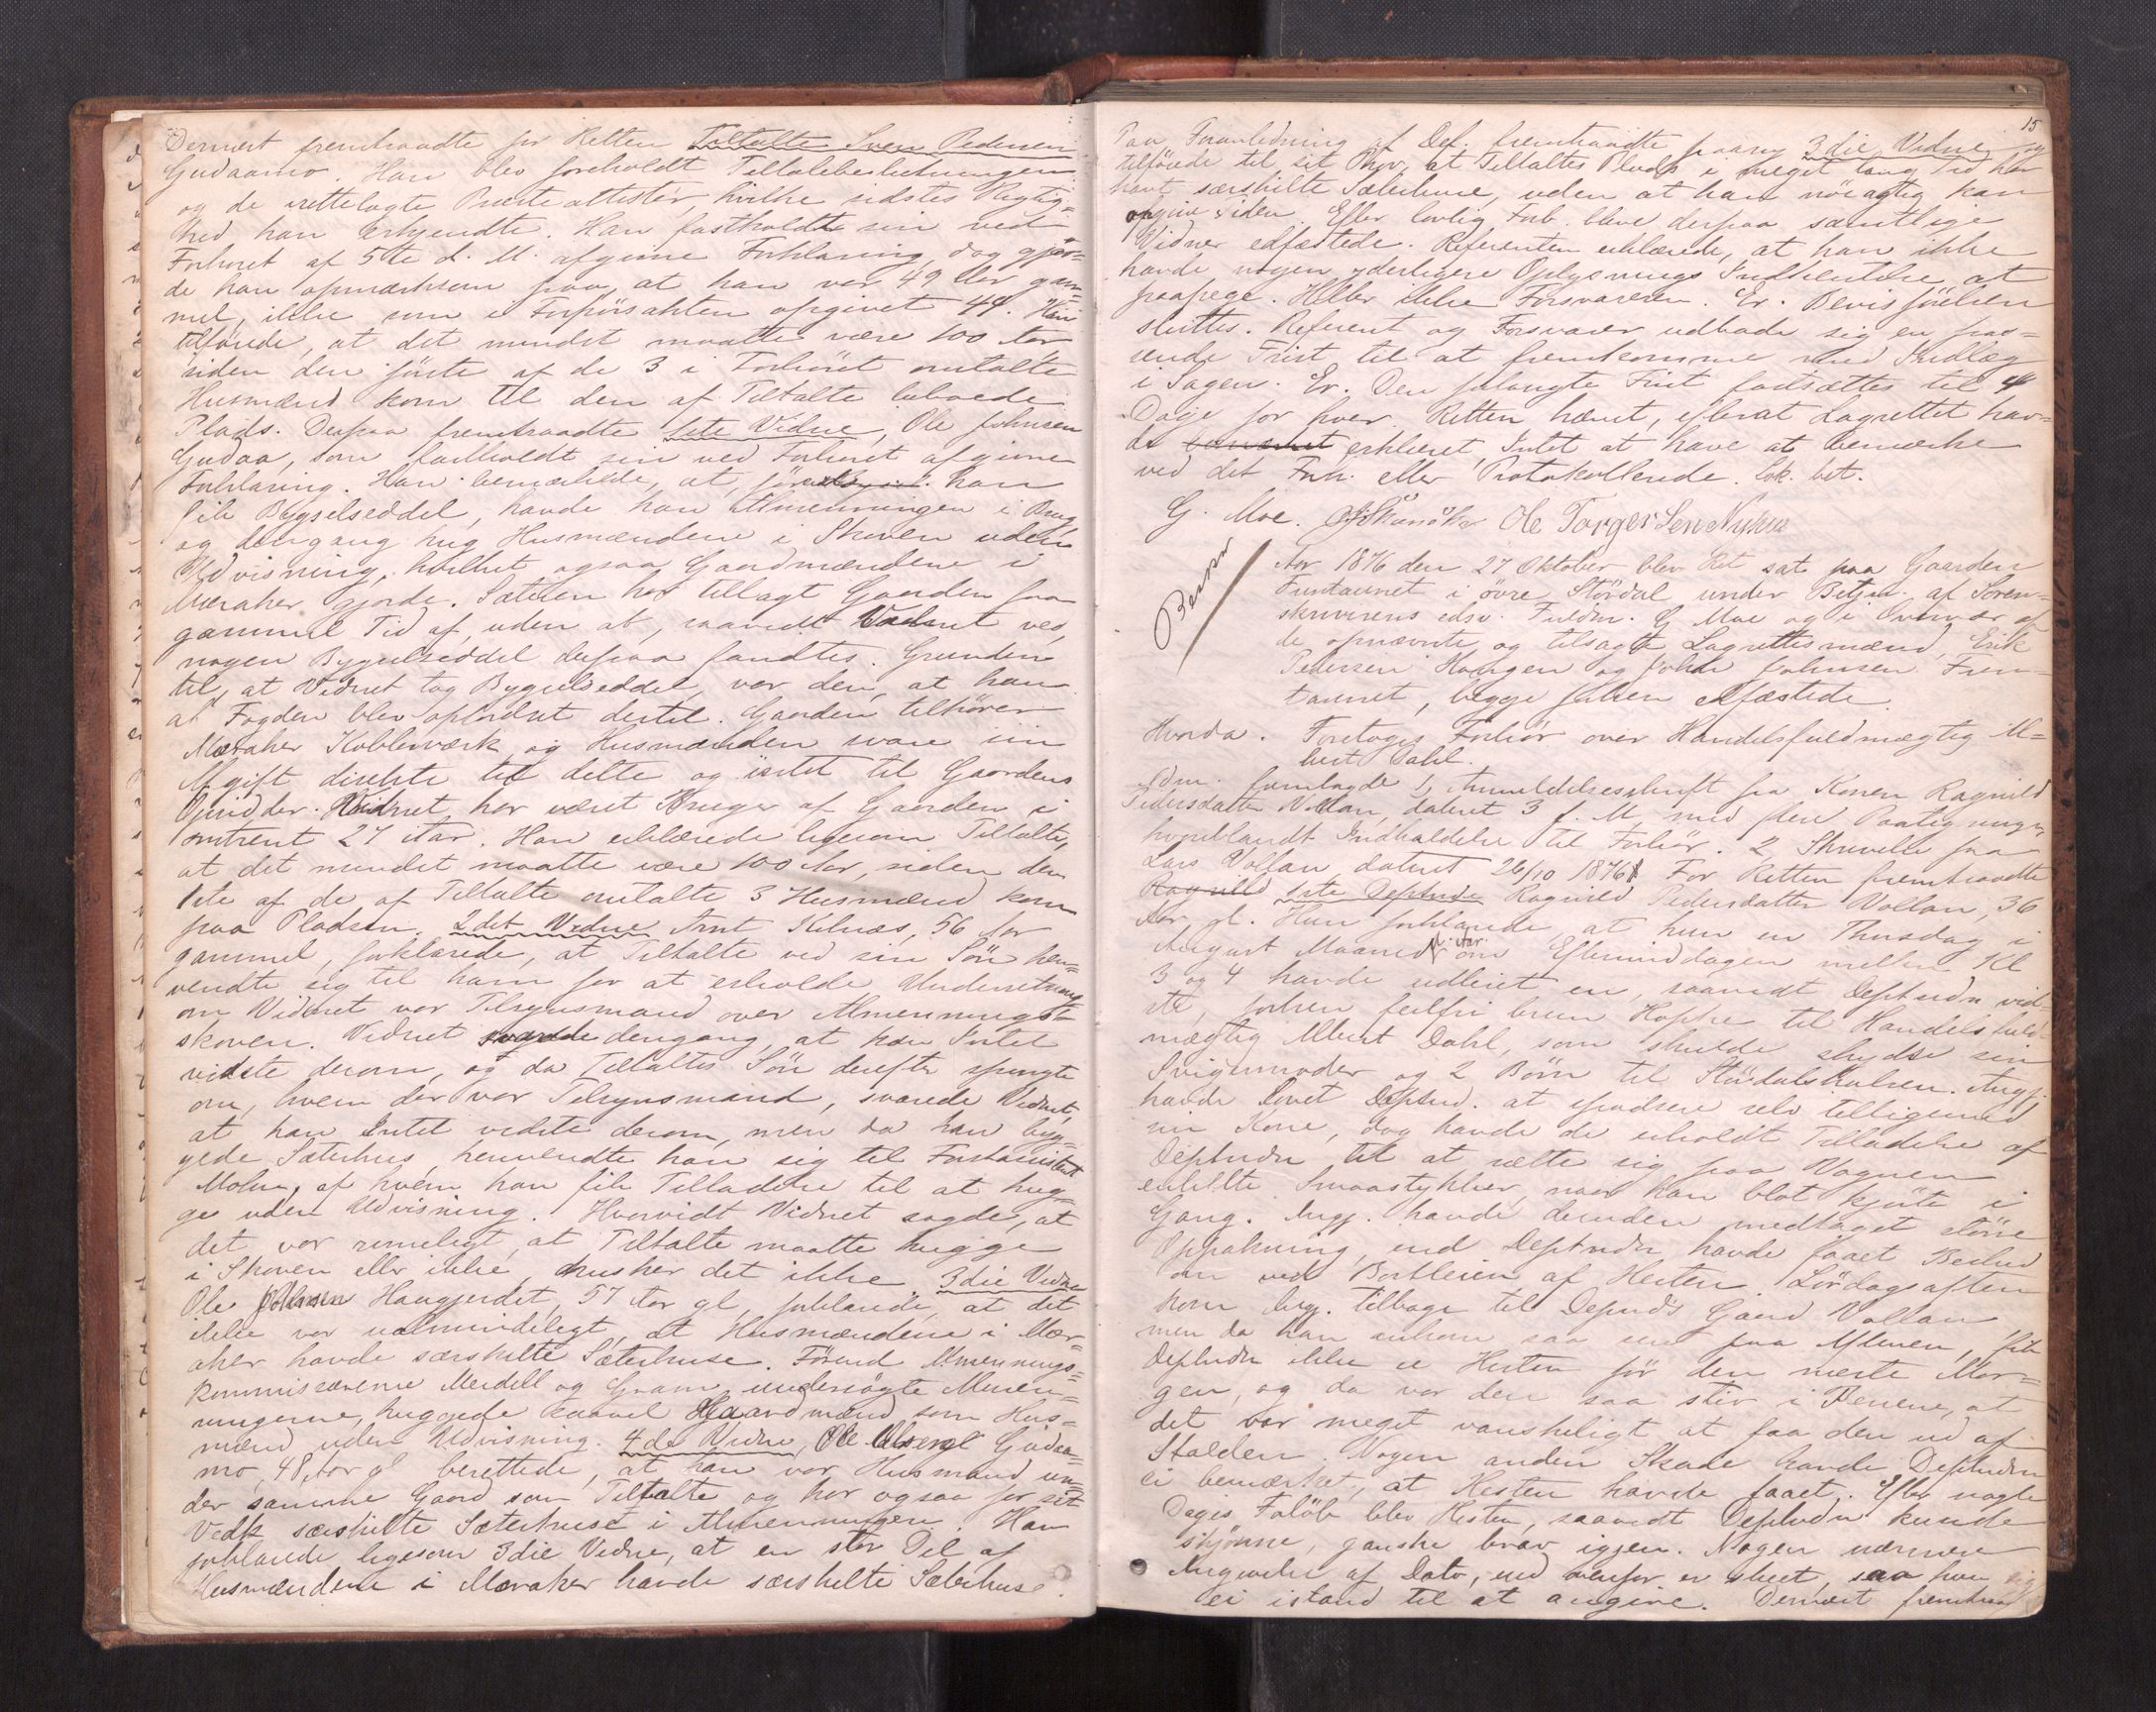 Dernæst fremtraadte for Retten Tiltalte Sven Pedersen
Gudaamo. Han blev foreholdt Tiltalebeslutningen
og de irettelagte Præsteattester, hvilke sidstes Rigtig=
hed han erkjendte. Han fastholdt sin ved
Forhøret af 5te d. M. afgivne Forklaring, dog gjor=
de han opmærksom paa, at han var 49 Aar gam=
mel, ikke som i Forhørsakten opgivet 44. Han
tilføiede, at det mindst maatte være 100 Aar
siden den første af de 3 i Forhøret omtalte
Husmænd kom til den af Tiltalte beboede
Plads. Derpaa fremtraadte 1ste Vidne, Ole Johnsen
Gudaa, som fastholdt sin ved Forhøret afgivne
Forklaring. Han bemærkede, at, før han
fik Bygselseddel, havde han Almenningen i Brug
og dengang hug Husmændene i Skoven uden
Udvisning, hvilket ogsaa Gaardmændene i
Meraker gjorde. Sæteren har tillagt Gaarden fra
gammel Tid af, uden at, saavidt Vidnet ved,
nogen Bygselseddel derpaa fandtes. Grunden
til, at Vidnet tog Bygselseddel, var den, at han
af Fogden blev opfordret dertil. Gaarden tilhører
Meraker Kobberværk, og Husmænden svare sin
Afgift direkte til dette og intet til Gaardens
Opsidder. Vidnet har været Bruger af Gaarden i
omtrent 27 Aar. Han erklærede ligesom Tiltalte,
at det mindst maatte være 100 Aar, siden den
1ste af de af Tiltalte omtalte 3 Husmænd kom
paa Pladsen. 2det Vidne Arnt Kilnæs, 56 Aar
gammel, forklarede, at Tiltalte ved sin Søn hen=
vendte sig til ham for at erholde Underretning
om Vidnet var Tilsynsmand over Almennings=
skoven. Vidnet svarede dengang, at han Intet
vidste derom, og da Tiltaltes Søn derefter spurgte
om, hvem der var Tilsynsmand, svarede Vidnet,
at han Intet vidste derom, men da han byg=
gede Sæterhus, henvendte han sig til Forstassistent
Molue, af hvem han fik Tilladelse til at hug=
ge uden Udvisning. Hvorvidt Vidnet sagde, at
det var rimeligt, at Tiltalte maatte hugge
i Skoven eller ikke, husker det ikke. 3die Vidne
Ole Johnsen Haugjerdet, 57 Aar gl, forklarede, at det
ikke var ualmindeligt, at Husmændene i Mer=
aker havde særskilte Sæterhuse. Førend Almennings=
kommisærerne Meidell og Gram undersøgte Almen=
ningerne, huggede saavel Gaardmænd som Hus=
mænd uden Udvisning. 4de Vidne, Ole Olsen Gudaa=
mo, 48 Aar gl berettede, at han var Husmand un=
der samme Gaard som Tiltalte og har ogsaa for sit
Vedk særskilte Sæterhuse i Almenningen. Han
forklarede, ligesom 3die Vidne, at en stor Del af
Husmændene i Meraker havde særskilte Sæterhuse.
15
Paa Foranledning af Def. fremtraadte paany 3die Vidne og
tilføiede til sit Prov, at Tiltaltes Plads i meget lang Tid har
havt særskilte Sæterhuse, uden at han nøiagtig kan
opgive Tiden. Efter lovlig Forb. bleve derpaa samtlige
Vidner edfæstede. Referenten erklærede, at han ikke
havde nogen yderligere Oplysnings Indhentelse at
paapege. Heller ikke Forsvareren. Er. Bevisførelsen
sluttes. Referent og Forsvarer udbade sig en pas=
sende Frist til at fremkomme med Indlæg
i Sagen. Er. Den forlangte Frist fastsættes til 4
Dage for hver. Retten hævet, efterat Lagrettet hav=
de erklæret Intet at have at bemærke
ved det Forh. eller Protokollerede. Lok. bet.
G. Moe. Ole Torgersen Nyhus
Aar 1876 den 27 Oktober blev Ret sat paa Gaarden
Funtaunet i øvre Stördal under Betjen. af Soren=
skriverens edsv. Fuldm. G Moe og i Overvær af
de opnævnte og tilsagte Lagrettesmænd, Erik
Pedersen Haugen og John Johnsen Fun=
taunet, begge forhen edfæstede.
Hvorda. Foretoges Forhør over Handelsfuldmægtig Al=
bert Dahl.
Adm. fremlagde 1, Anmeldelsesskrift fra Konen Ragnild
Pedersdatter Vollan, dateret 3 f. M. med flere Paategninger,
hvoriblandt Indkaldelse til Forhør. 2 Skrivelse fra
Lars Vollan dateret 26/10 1876. For Retten fremtraadte
Ragnild 1ste Deptnda Ragnild Pedersdatter Vollan, 36
Aar gl. Hun forklarede, at hun en Thirsdag i
August Maaned d. Aar om Eftermiddagen mellem Kl
3 og 4 havde udleiet en, saavidt Deptndn vid=
ste, forhen feilfri brun Hoppe til Handelsfuld=
mægtig Albert Dahl, som skulde skydse sin
Svigermoder og 2 Børn til Stördalshalsen. Angj.
havde lovet Deptnd. at spadsere selv tilligemed
sin Kone, dog havde de erholdt Tilladelse af
Deptndn til at sætte sig paa Vognen
enkelte Smaastykker, naar han blot kjørte i
Gang. Angj. havde desuden medtaget større
Oppakning, end Deptndn havde faaet Besked
om ved Bortleien af Hesten. Lørdagsaften
kom Ang. tilbage til Depnds Gaard Vollan
men da han ankom saa sent paa Aftenen, fik
Deptndn ikke se Hesten før den næste Mor=
gen, og da var den saa stiv i Benene, at
det var meget vanskeligt at faa den ud af
Stalden. Nogen anden Skade havde Deptndn
ei bemærket, at Hesten havde faaet. Efter nogle
Dages Forløb blev Hesten, saavidt Deptndn kunde
skjønne, ganske brav igjen. Nogen nærmere
Angivelse af Dato, end ovenfor er skeet, saa hun sig
ei istand til at angive. Dernæst fremtraad